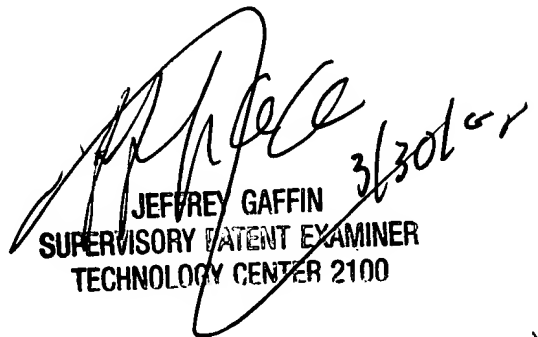 3/30/
JEFFREY GAFFIN
SUPERVISORY PATENT EXAMINER
TECHNOLOGY CENTER 2100